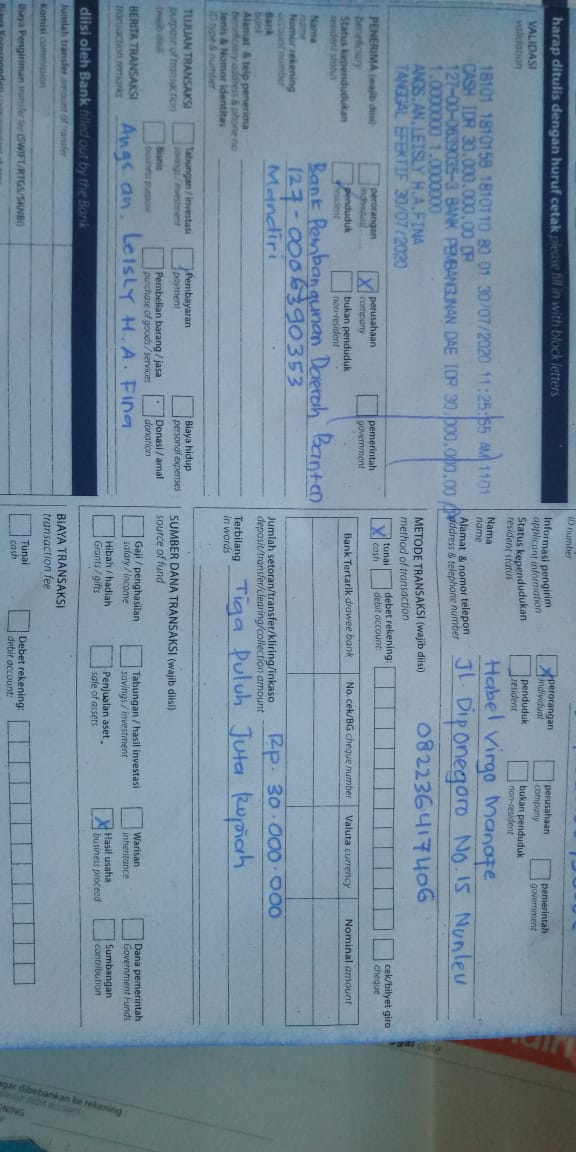 harap ditulis dengan huruf cetak please fill in with block letters
VALIDASI
validation
18101 1810158 1810110 80 01 30/07/2020 11:25:55 AM 1101
CASH IDR 30,000,000.00 DR
BANK PEMBANGUNAN DAE IDR 30,000,000.00
1.0000000 1.0000000
ANGS.AN LEISLY H.A.FINA
TANGGAL EFEKTIF 30/07/2020
PENERIMA (wajib diisi)
beneficiary
perorangan
individual
X perusahaan
company
pemerintah
government
Status kependudukan
resident status
penduduk
resident
bukan penduduk
non-resident
Nama
name
Bank Pembangunan Daerah Banten
Nomor rekening
account number
127-0006390353
Bank
bank
Mandiri
Alamat & telp penerima
beneficiary address & phone no
Jenis & Nomor Identitas
ID type & number
TUJUAN TRANSAKSI
purpose of transaction
(wajib diisi)
Tabungan / investasi
savings / investment
Pembayaran
payment
Biaya hidup
personal expenses
Bisnis
business purpose
Pembelian barang / jasa
purchase of goods / services
Donasi / amal
donation
BERITA TRANSAKSI
transaction remarks
Angs an. Leisly H.A. Fina
diisi oleh Bank filled out by the Bank
Jumlah transfer amount of transfer
Komisi commission
Biaya Pengiriman transfer fee (SWIFT/RTGS/SKNBI)
ID number
Informasi pengirim
applicant information
X perorangan
individual
perusahaan
company
pemerintah
government
Status kependudukan
resident status
penduduk
resident
bukan penduduk
non-resident
Nama
name
Habel Virgo Manafe
Alamat & nomor telepon
address & telephone number
Jl. Diponegoro No. 15 Nunleu
082236417406
METODE TRANSAKSI (wajib diisi)
method of transaction
X tunai
cash
debet rekening:
debit account:
cek/bilyet giro
cheque
Bank Tertarik drawee bank
No. cek/BG cheque number
Valuta currency
Nominal amount
Jumlah setoran/transfer/kliring/inkaso
deposit/transfer/clearing/collection amount
Rp. 30.000.000
Terbilang
in words
Tiga Puluh Juta Rupiah
SUMBER DANA TRANSAKSI (wajib diisi)
source of fund
Gaji / penghasilan
salary / income
Tabungan / hasil investasi
savings / investment
Warisan
inheritance
Dana pemerintah
Government Funds
Hibah / hadiah
Grants / gifts
Penjualan aset
sale of assets
X Hasil usaha
business proceed
Sumbangan
contribution
BIAYA TRANSAKSI
transaction fee
Tunai
cash
Debet rekening:
debit account:
agar dibebankan ke rekening :
please debit account